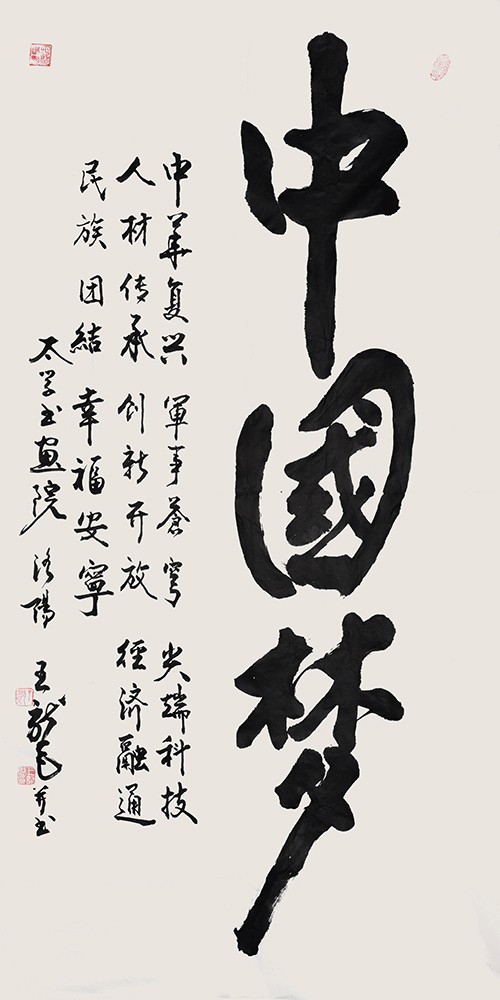 中國梦
中華复兴 軍事蒼穹 尖端科技
人材传承 创新开放 經济融通
民族团結 幸福安寧
太学书画院 洛陽 王 并书